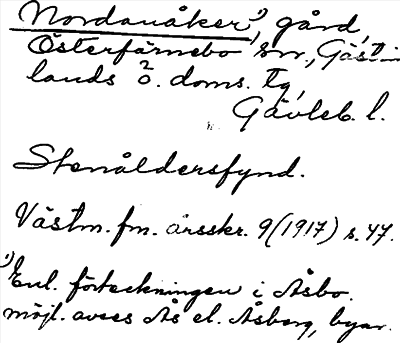 Nordanåker¹⁾, gård,
Österfärnebo sn., Gästrik-
lands ö. doms. tg,
Gävleb. l.
Stenåldersfynd.
Västm. fm. årsskr. 9 (1917) s. 47.
¹⁾Enl. förteckningen i Åsbo.
möjl. avses Ås el. Åsberg, byar.